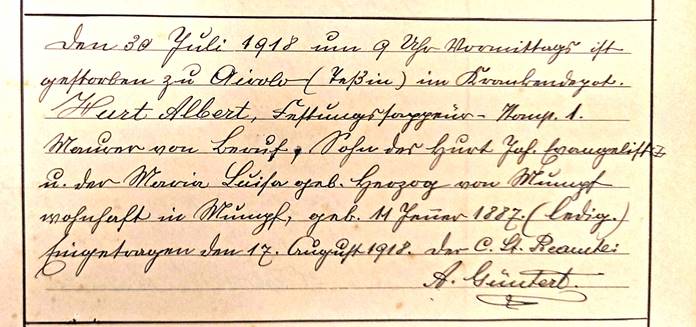 Den 30 Juli 1918 um 9 Uhr Vormittags ist
gestorben zu Airolo (Teßin) im Krankendepot.
Hurt Albert, Festungssappeur-Komp. 1.
Maurer von Beruf, Sohn des Hurt Joh. Evangelist
u. der Maria Luisa geb. Herzog von Mumpf
wohnhaft in Mumpf, geb. 11 Jenner 1887. (ledig.)
Eingetragen den 17. August 1918. Der C. St. Beamte:
A. Güntert.